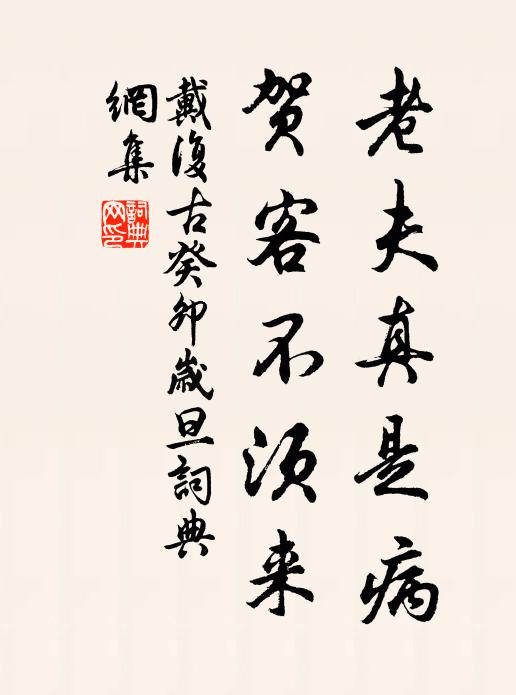 老夫真是病
贺客不须来
戴復古癸卯歲旦詞典
網集
詞典
网印